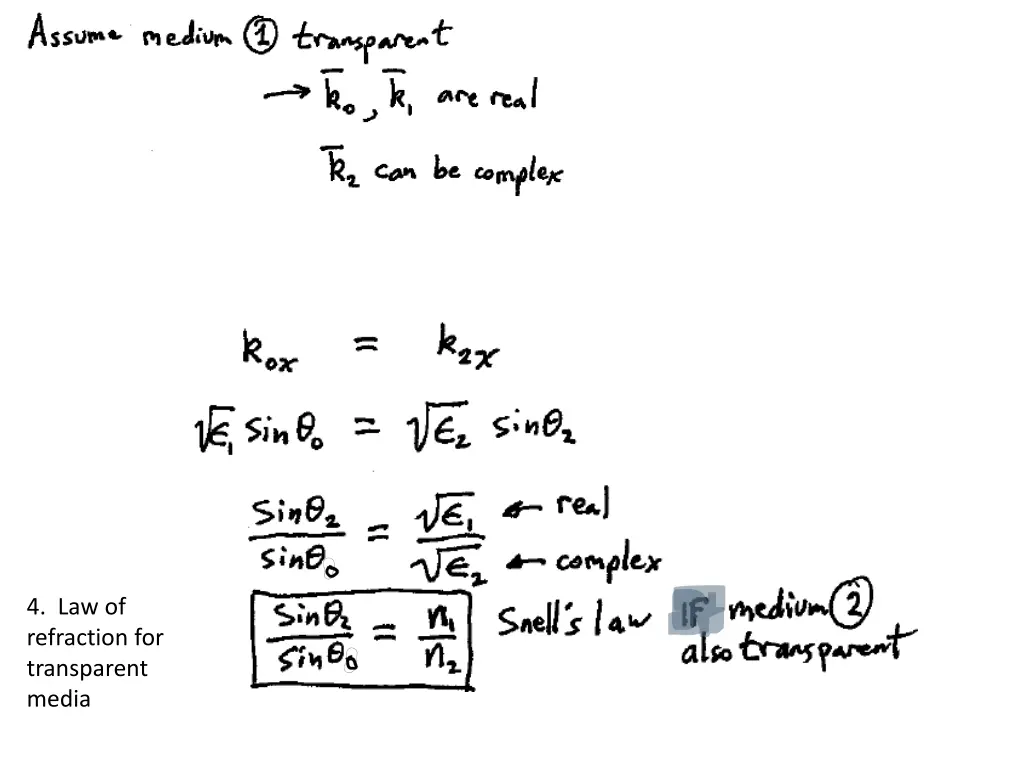 Assume medium ① transparent
→ k̄₀, k̄₁ are real
k̄₂ can be complex
k₀ₓ = k₂ₓ
√ϵ₁ sinθ₀ = √ϵ₂ sinθ₂
sinθ₂ / sinθ₀ = √ϵ₁ / √ϵ₂ ← real ← complex
sinθ₂ / sinθ₀ = n₁ / n₂ Snell's law IF medium ②
also transparent
4. Law of
refraction for
transparent
media